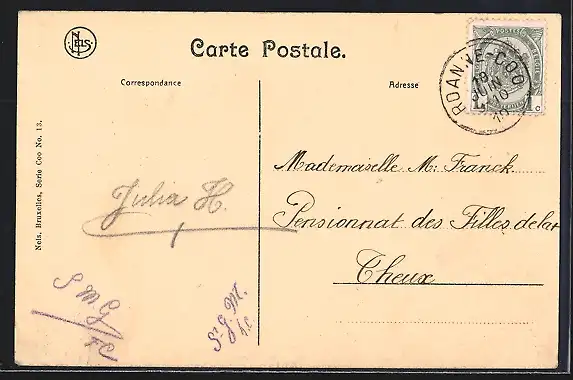 NELS
Carte Postale.
Correspondance
Adresse
ROANNE-COO
19
JUIN
10
19
1
Nels, Bruxelles, Serie Coo No. 13.
Mademoiselle M. Franck
Pensionnat des Filles de la
Theux
Julia H.